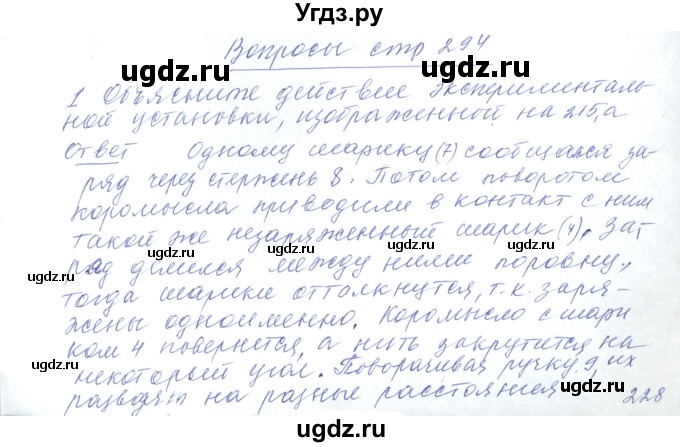 Угдз.ру
Вопросы стр 294
1 Объясните действие эксперименталь-
ной установки, изображенной на 215,а
Ответ Одному шарику (7) сообщался за-
ряд через стержень 8. Потом поворотом
коромысла приводили в контакт с ним
такой же незаряженный шарик (4), за,
ряд делился между ними поровну,
тогда шарики оттолкнутся, т.к. заря-
жены одноименно. Коромысло с шари
ком 4 повернется, а нить закрутится на
некоторый угол. Поворачивая ручку 9, их
разводят на разные расстояния 228
ugdz.ru ugdz.ru ugdz.ru
ugdz.ru ugdz.ru
ugdz.ru ugdz.ru ugdz.ru
ugdz.ru ugdz.ru
ugdz.ru ugdz.ru ugdz.ru
ugdz.ru ugdz.ru
ugdz.ru ugdz.ru ugdz.ru
Угдз.ру